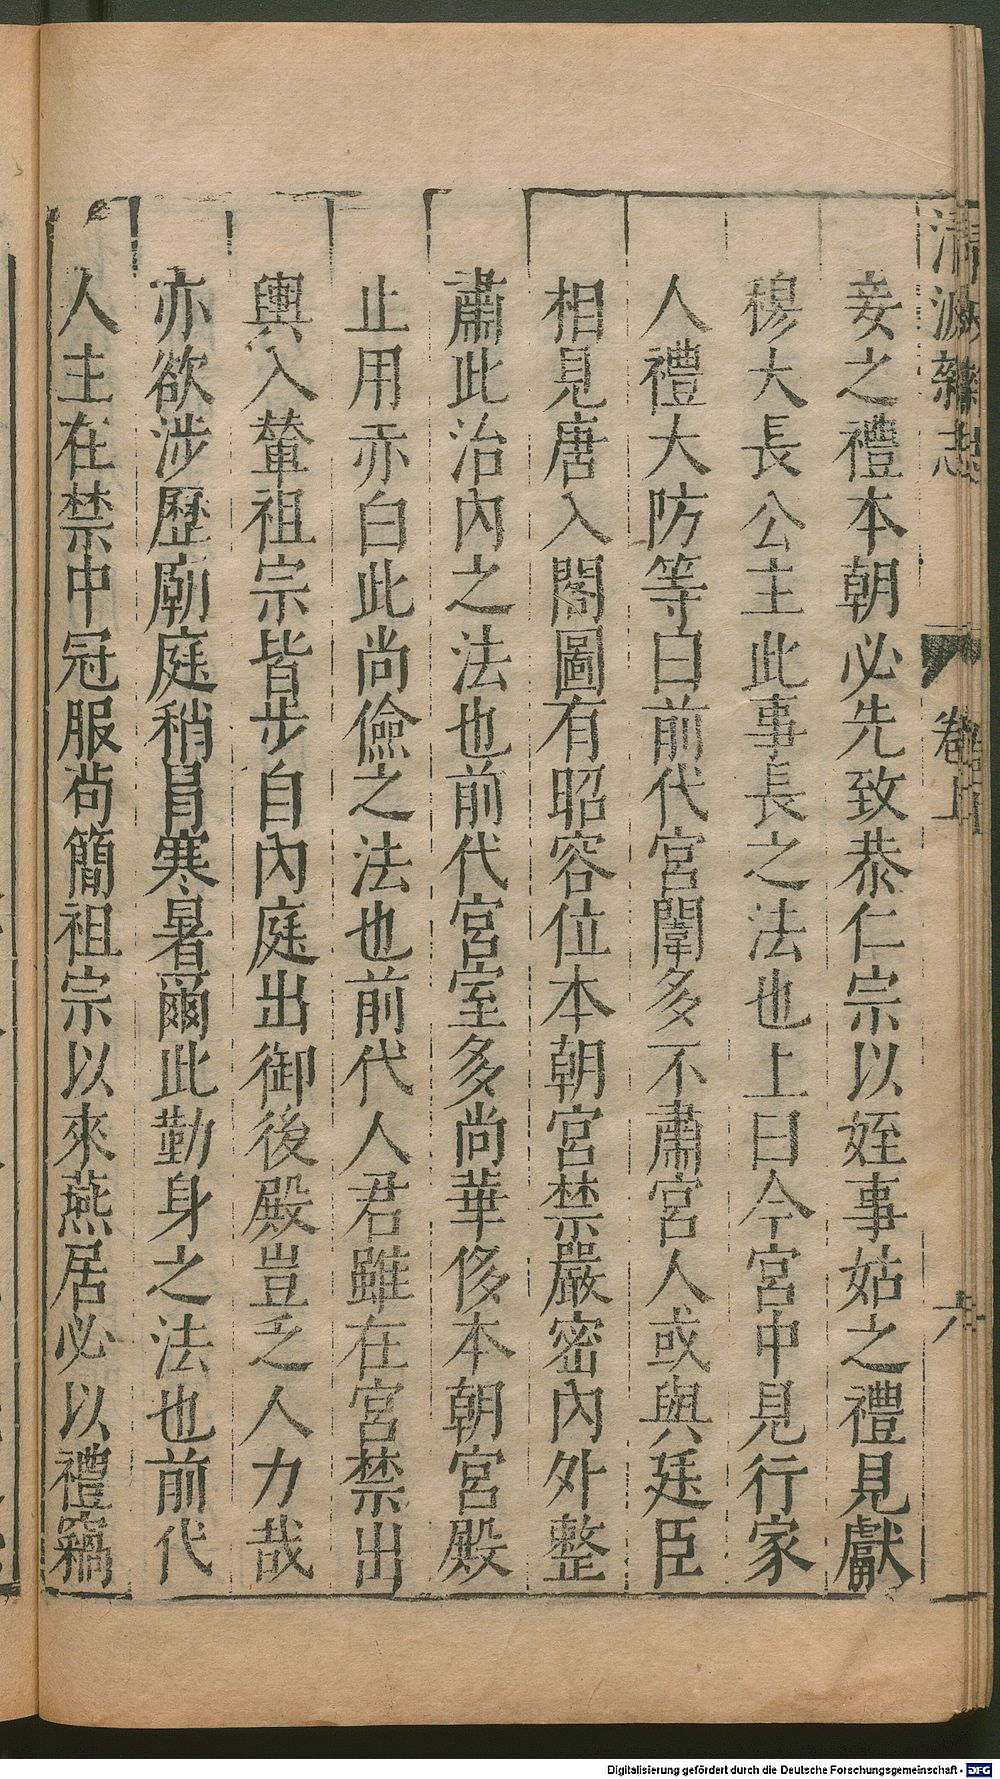 妾之禮本朝必先致恭仁宗以姪事姑之禮見獻
穆大長公主此事長之法也上曰今宮中見行家
人禮大防等曰前代宮闈多不肅宮人或與廷臣
相見唐入閤圖有昭容位本朝宮禁嚴密內外整
肅此治內之法也前代宮室多尚華侈本朝宮殿
止用赤白此尚儉之法也前代人君雖在宮禁出
輿入輦祖宗皆步自內庭出御後殿豈乏人力哉
亦欲涉歷廟庭稍冒寒暑爾此勤身之法也前代
人主在禁中冠服尚簡祖宗以來燕居必以禮竊
清波雜志
卷上
六
Digitalisierung gefördert durch die Deutsche Forschungsgemeinschaft - DFG